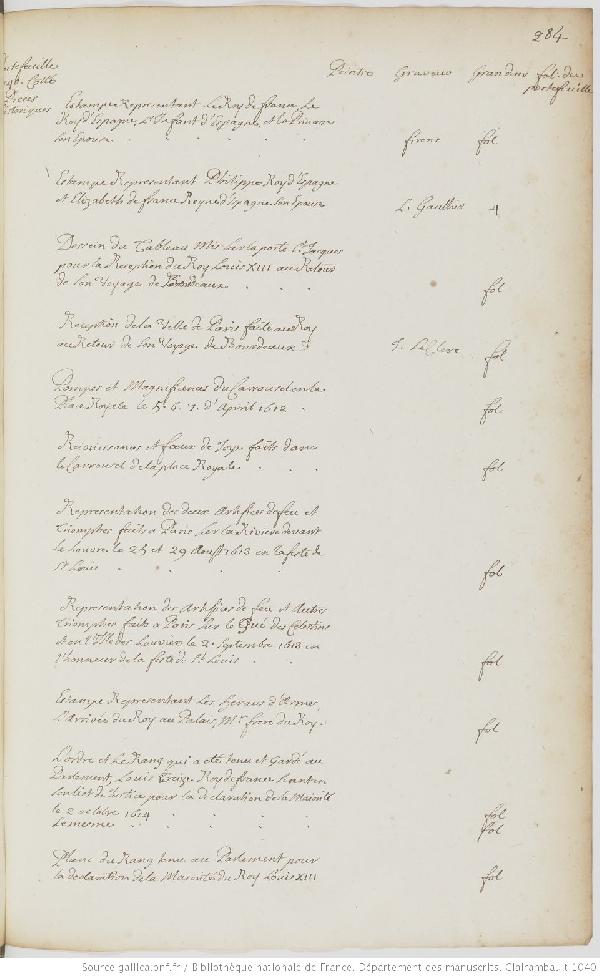 284
Peintre Graveur Grandeur fol. du
portefeuille
Pieces
Estampe Representant Le Roy de france, Le
Roy d'Espagne, L'Infant d'Espagne, et la Princesse
son Epouse. firens fol.
Estampe Representant Philippe Roy d'Espagne
et Elizabeth de france Reyne d'Espagne son Epouse L. Gaultier 4
Dessein du Tableau Mis sur la porte St. Jacques
pour la Reception du Roy Louis XIII au Retour
de son Voyage de Bordeaux fol.
Reception de la Ville de Paris faite au Roy
au Retour de son Voyage de Bourdeaux J. LeClerc fol.
Pompes et Magnificences du Carrousel en la
Place Royale le 5. 6. 7. d'Avril 1612. fol.
Rejouissances et foeux de Joye faits dans
le Carrousel de la place Royale. fol.
Representation des deux Artifices de feu et
Triomphes faits a Paris sur la Riviere devant
le Louvre le 25 et 29 Aoust 1613 en la feste de
St. Louis fol.
Representation des Artifices de feu et Autres
Triomphes faits a Paris sur le Qué des Celestins
L'Isle des Louviers le 2e. Septembre 1613 en
l'honneur de la feste de St. Louis. fol.
Estampe Representant Les Heraus d'Armes,
L'Arrivée du Roy au Palais, Mr. frere du Roy. fol.
L'ordre et Le Rang qui a eté tenu et Gardé au
Parlement, Louis Treize Roy de france seant en
son lict de Justice pour la declaration de la Majorité
le 2 octobre 1614 fol.
Le mesme fol.
Planc du Rang tenu au Parlement pour
la declaration de la Majorité du Roy Louis XIII fol.
Source gallica.bnf.fr / Bibliothèque nationale de France. Département des manuscrits. Clairambault 1040